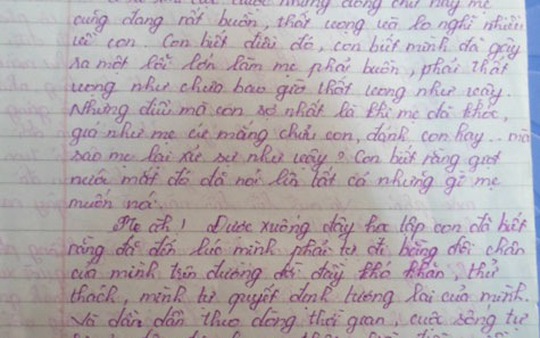 được những dòng chữ này mẹ
cũng đang rất buồn, thất vọng và lo nghĩ nhiều
về con. Con biết điều đó, con biết mình đã gây
ra một lỗi lớn làm mẹ phải buồn, phải thất
vọng như chưa bao giờ thất vọng như vậy.
Nhưng điều mà con sợ nhất là khi mẹ đã khóc,
giá như mẹ cứ mắng chửi con, đánh con hay.. mà
sao mẹ lại xử sự như vậy? Con biết rằng giọt
nước mắt đó đã nói lên tất cả những gì mẹ
muốn nói.
Mẹ ah! Được xuống đây học tập con đã biết
rằng đã đến lúc mình phải tự đi bằng đôi chân
của mình trên đường đời đầy khó khăn, thử
thách, mình tự quyết định tương lai của mình.
Và dần dần theo dòng thời gian, cuộc sống tự